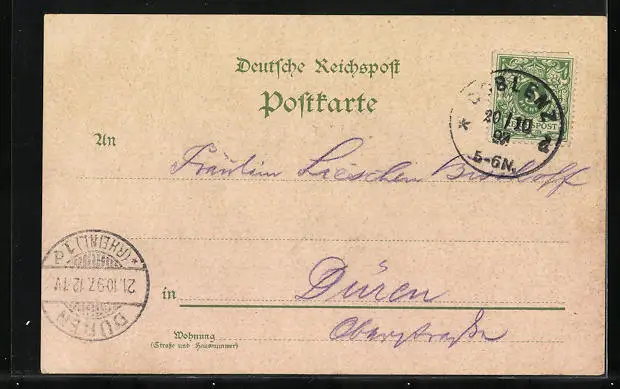 Deutsche Reichspost
Postkarte
COBLENZ 2
20/10
97
5-6N.
POST
An
Fräulein Lieschen Bischoff
(RHEINL.) 1
21.10.97.12-1V
DÜREN
in Düren
Oberstraße
Wohnung
(Straße und Hausnummer)